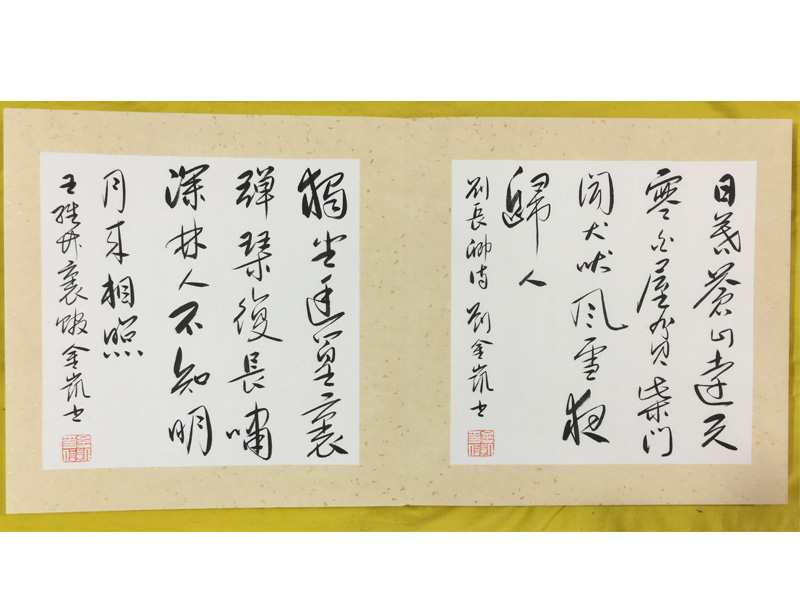 日暮蒼山遠天
寒白屋貧柴門
聞犬吠風雪夜
歸人
劉長卿詩 劉金凱書
獨坐幽篁裏
彈琴復長嘯
深林人不知明
月来相照
王維竹裏館金凱書